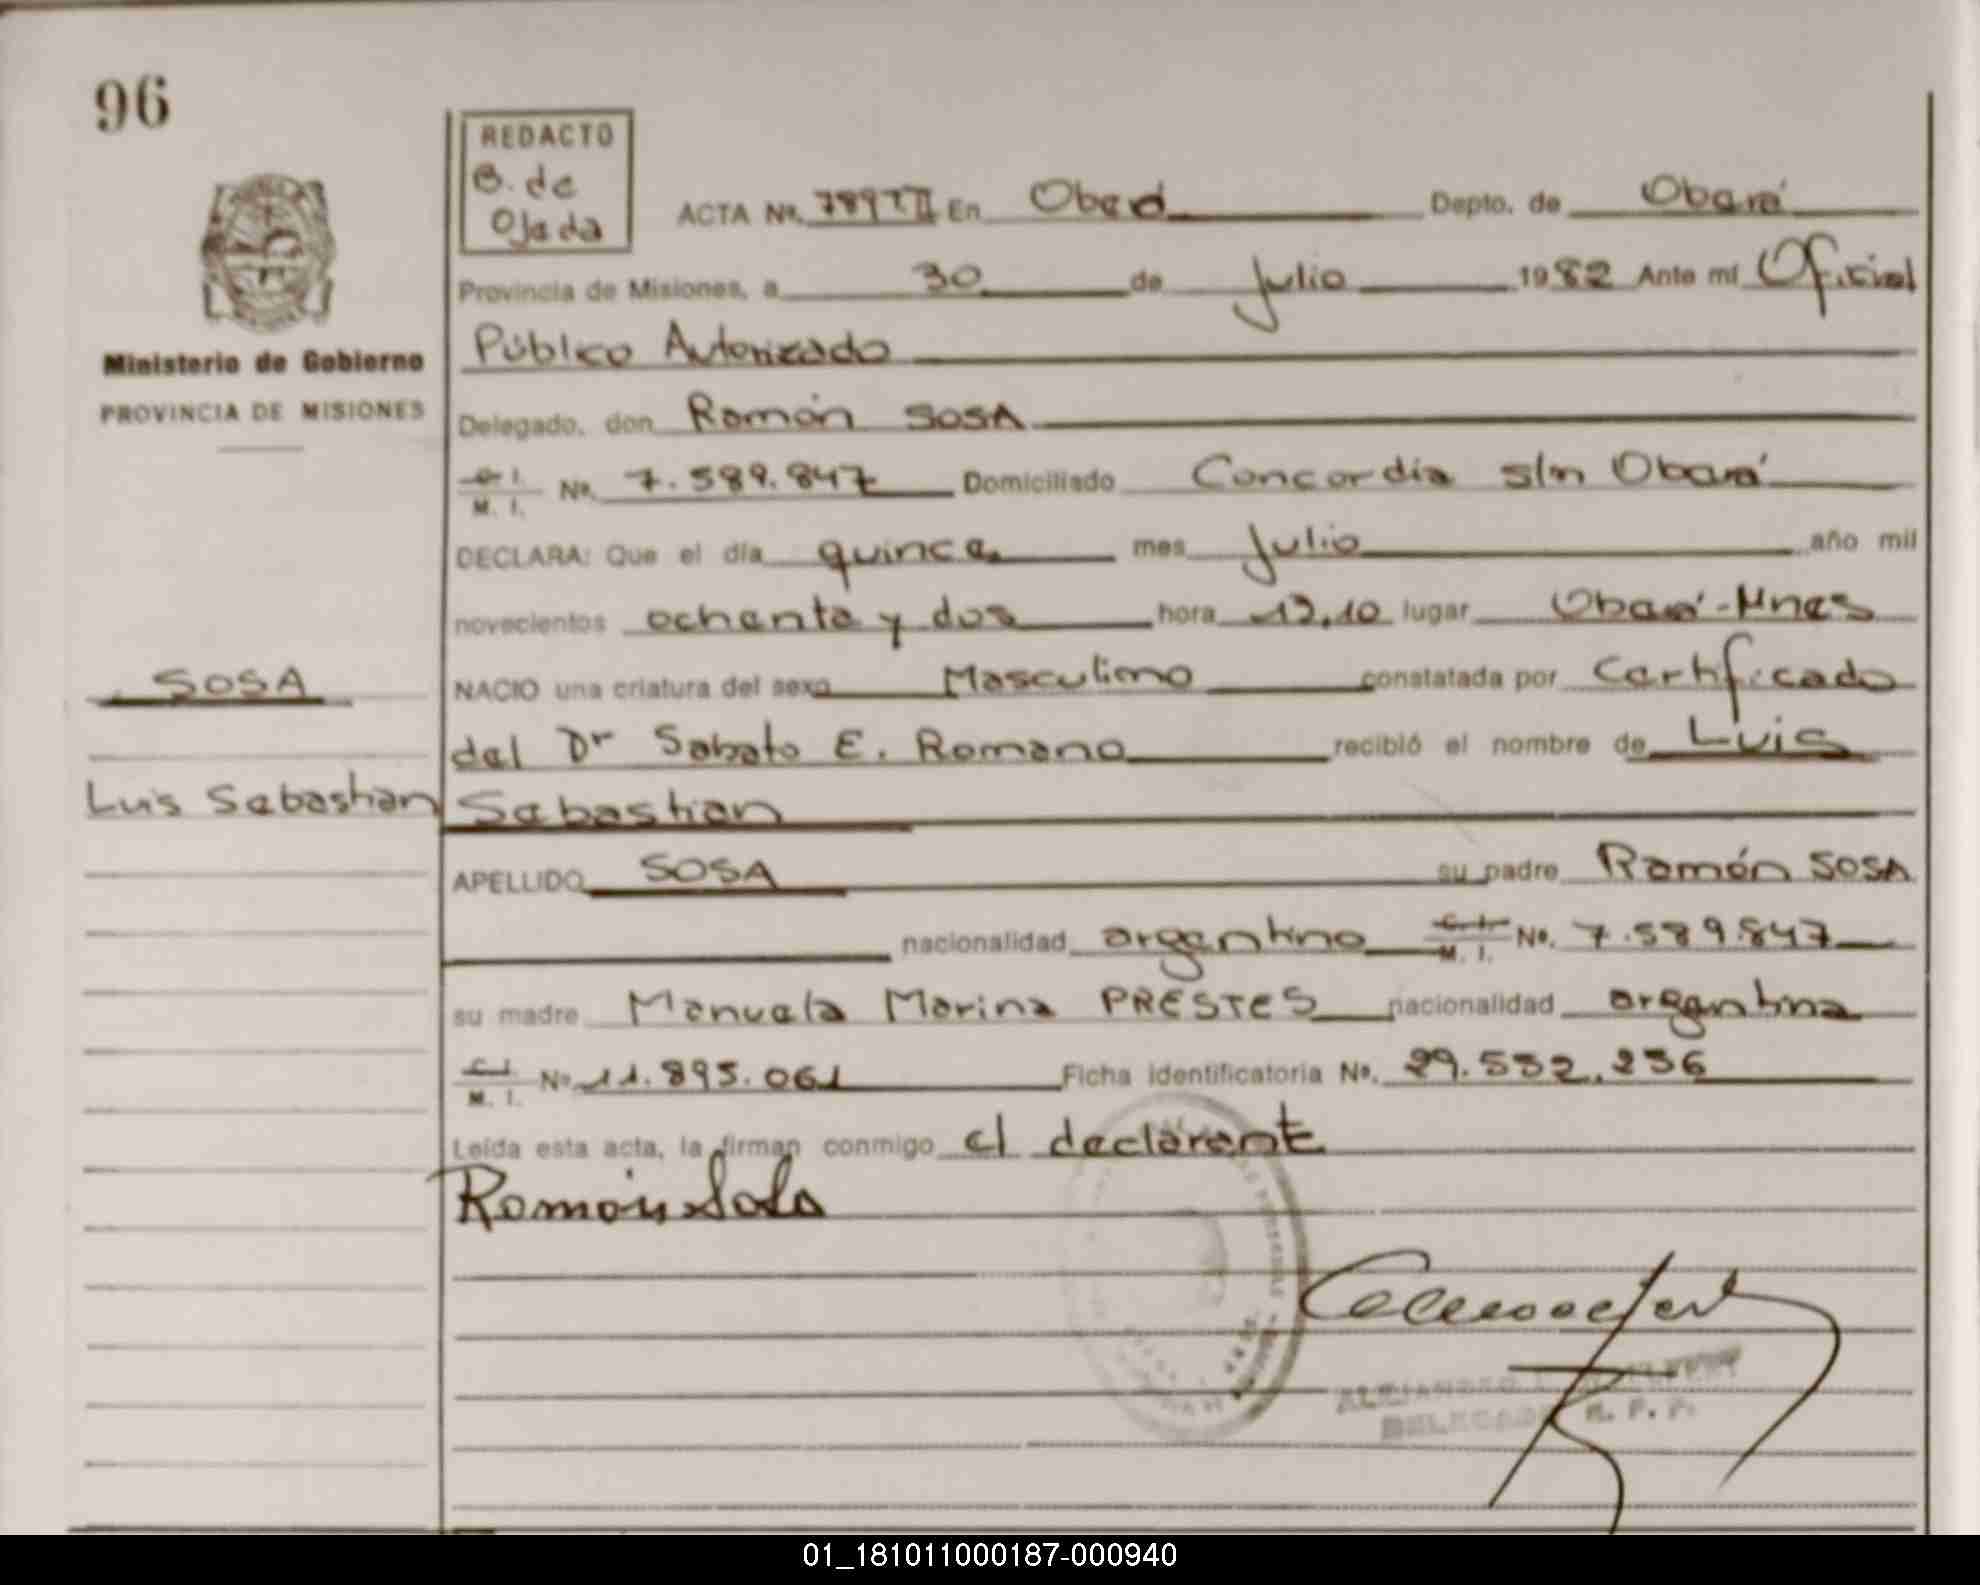 96
REDACTO
B. de
Ojeda
ACTA Nº. 789TII En Oberá Depto. de Oberá
Provincia de Misiones, a 30 de Julio 1982 Ante mí Oficial
Público Autorizado
Ministerio de Gobierno
PROVINCIA DE MISIONES
Delegado, don Ramón SOSA
C. I. M. I. Nº. 7.589.847 Domiciliado Concordia s/n Oberá
DECLARA: Que el día quince mes Julio año mil
novecientos ochenta y dos hora lugar Oberá-Mnes
SOSA
NACIO una criatura del sexo Masculino constatada por Certificado
del Dr Sabato E. Romano recibió el nombre de Luis
Luis Sebastian
Sebastian
APELLIDO SOSA su padre Ramón SOSA
nacionalidad argentino C. I. M. I. Nº. 7.589.847
su madre Manuela Marina PRESTES nacionalidad argentina
C. I. M. I. Nº 11.895.061 Ficha identificatoria Nº. 29.532.236
Leída esta acta, la firman conmigo el declarante
Ramón Sosa
ALEJANDRO
DELEGADO R. P. P.
01_181011000187-000940